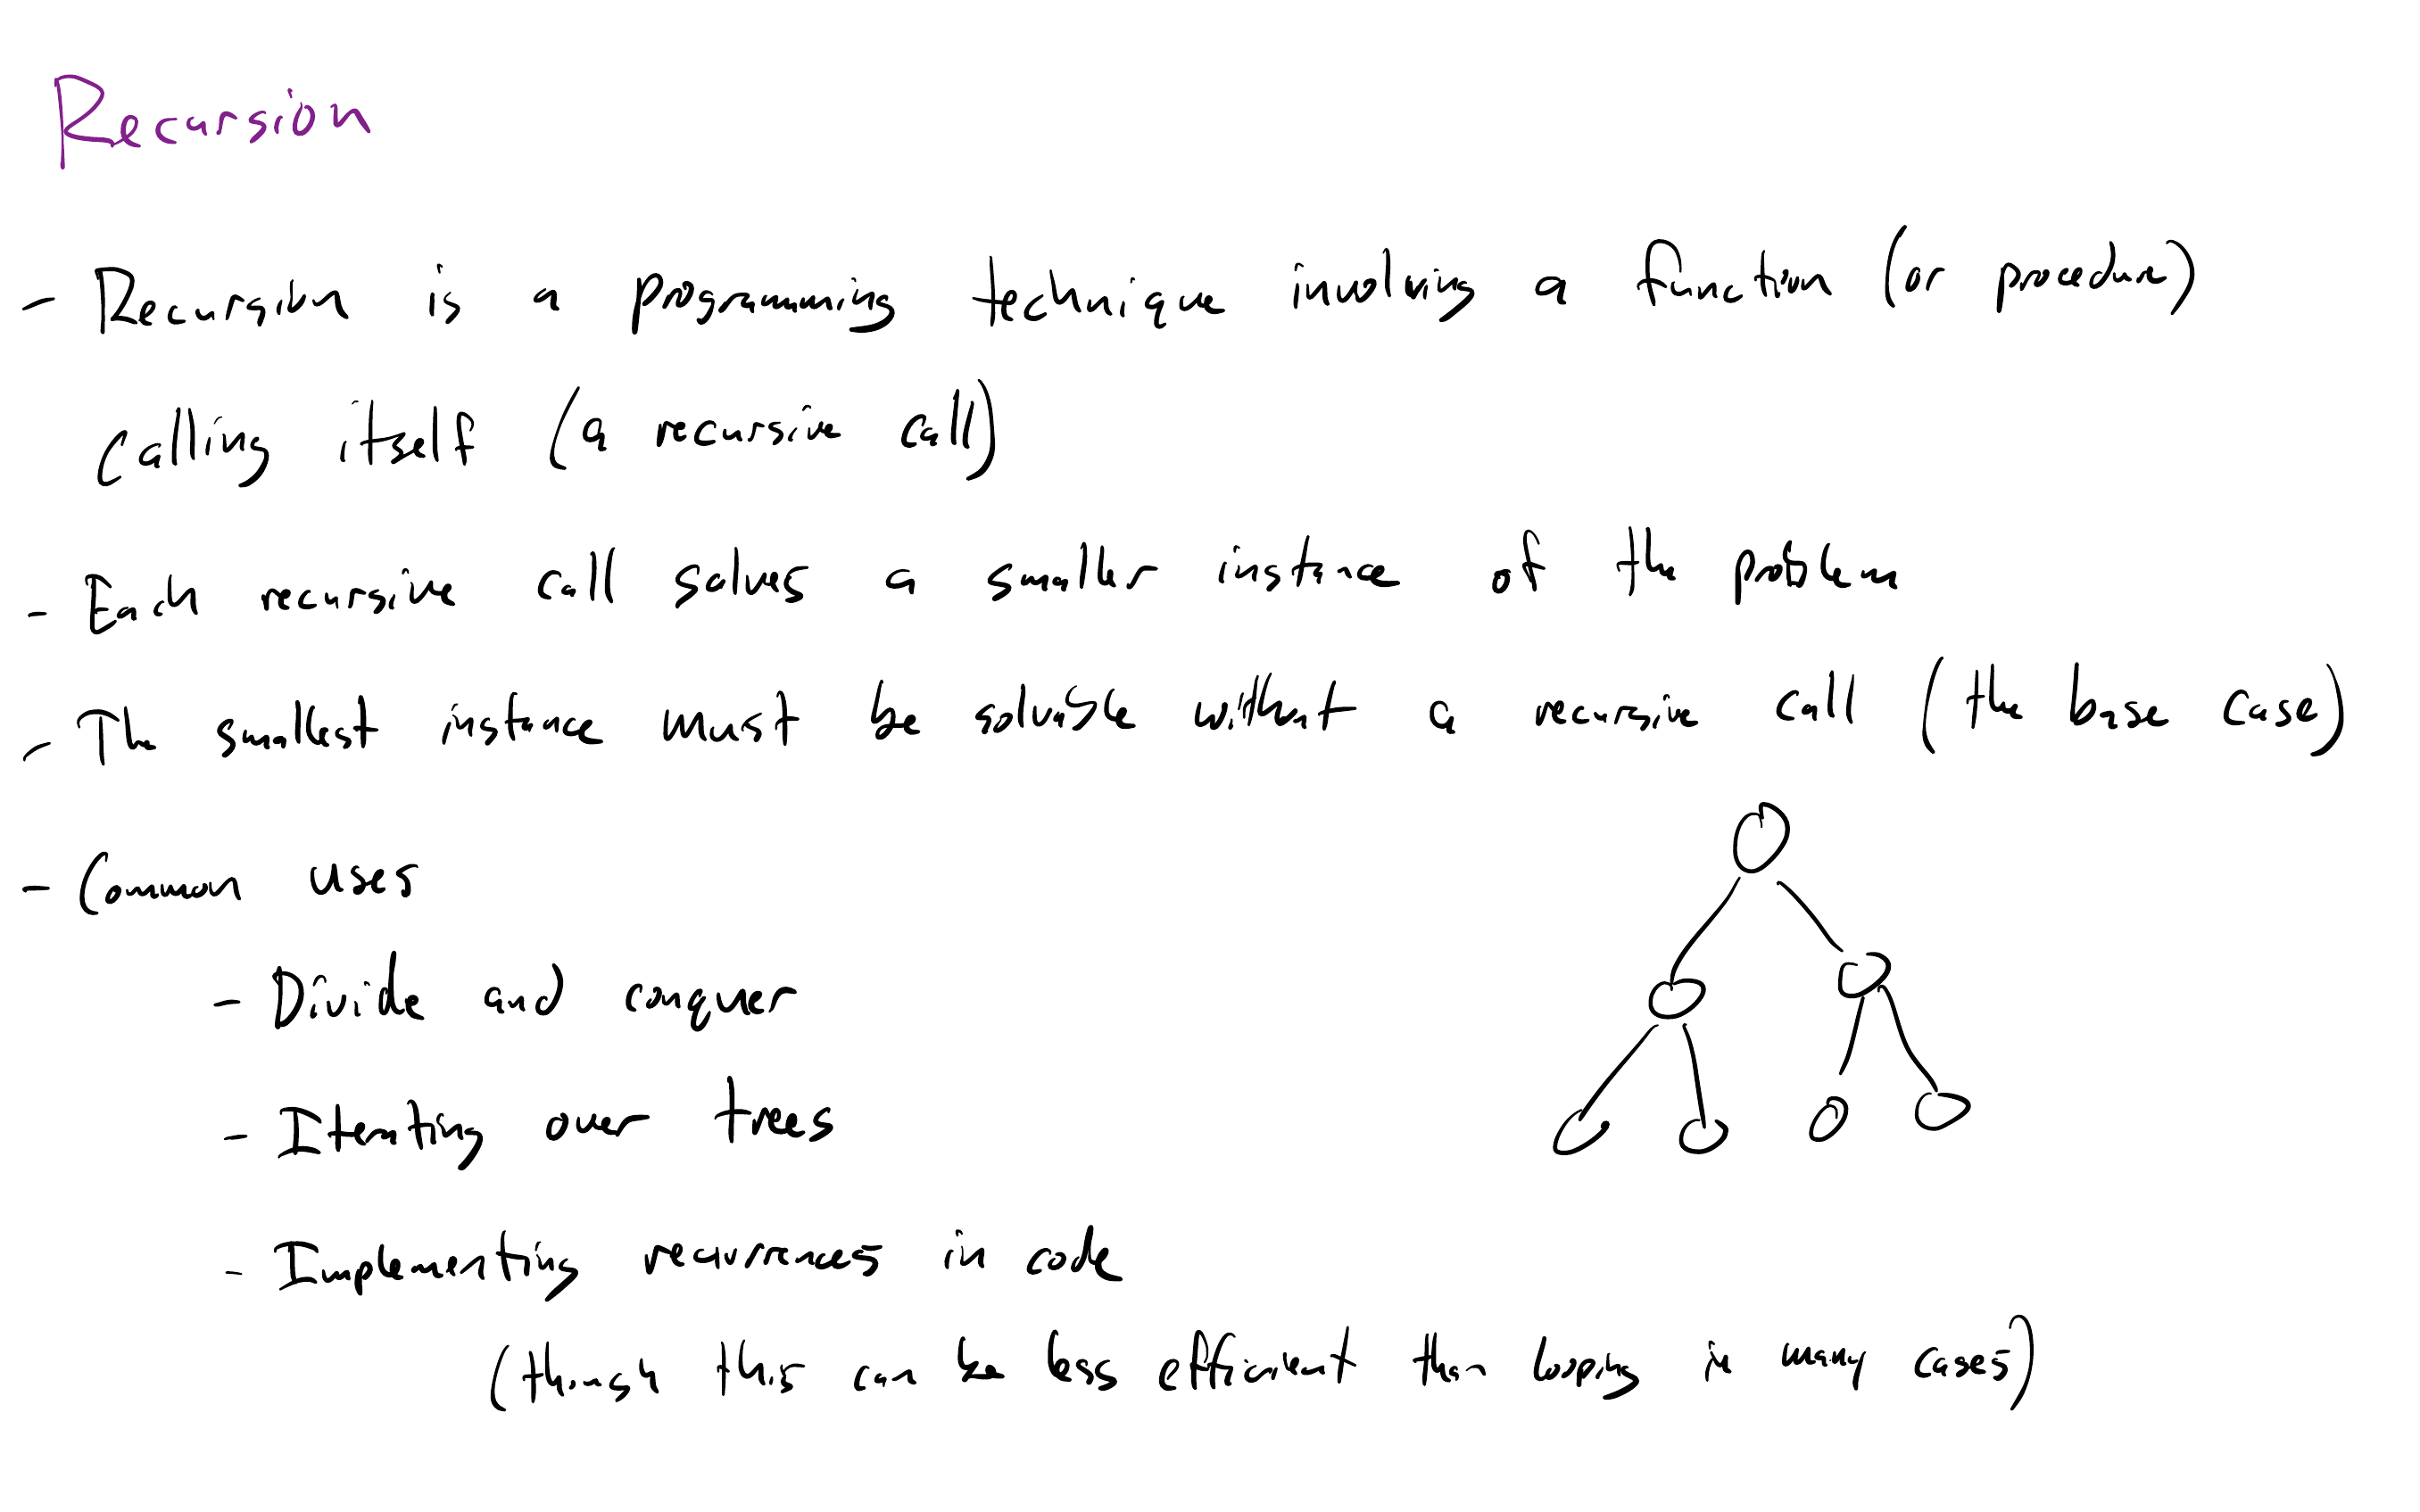 Recursion
- Recursion is a programming technique involving a function (or procedure)
calling itself (a recursive call)
- Each recursive call solves a smaller instance of the problem
- The smallest instance must be solvable without a recursive call (the base case)
- Common uses
- Divide and conquer
- Iterating over trees
- Implementing recurrences in code
(though this can be less efficient than looping in many cases)